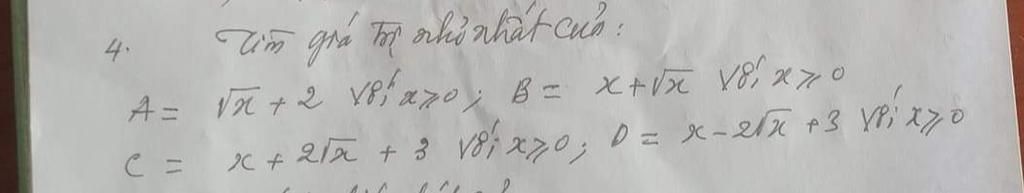 4. Tìm giá trị nhỏ nhất của:
A = √x + 2 với x ⩾ 0; B = x + √x với x ⩾ 0
C = x + 2√x + 3 với x ⩾ 0; D = x - 2√x + 3 với x ⩾ 0